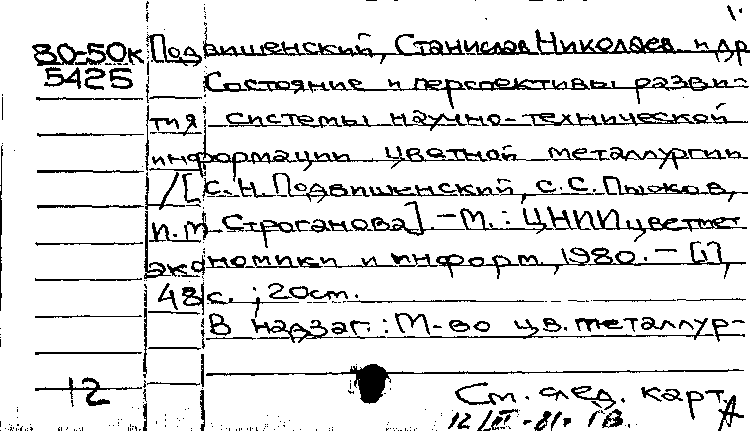 1.
80-50к Подвишенский, Станислав Николаев. и др
5425 Состояние и перспективы разви-
тия системы научно-технической
информации цветной металлургии
/[С.Н. Подвишенский, С.С. Пыжов,
И.М. Строганова]. - М.: ЦНИИцветмет
экономики и информ, 1980. - [1],
48 с. ; 20 см.
В надзаг.: М-во цв. металлур-
12 См. след. карт.
12/III-81г.